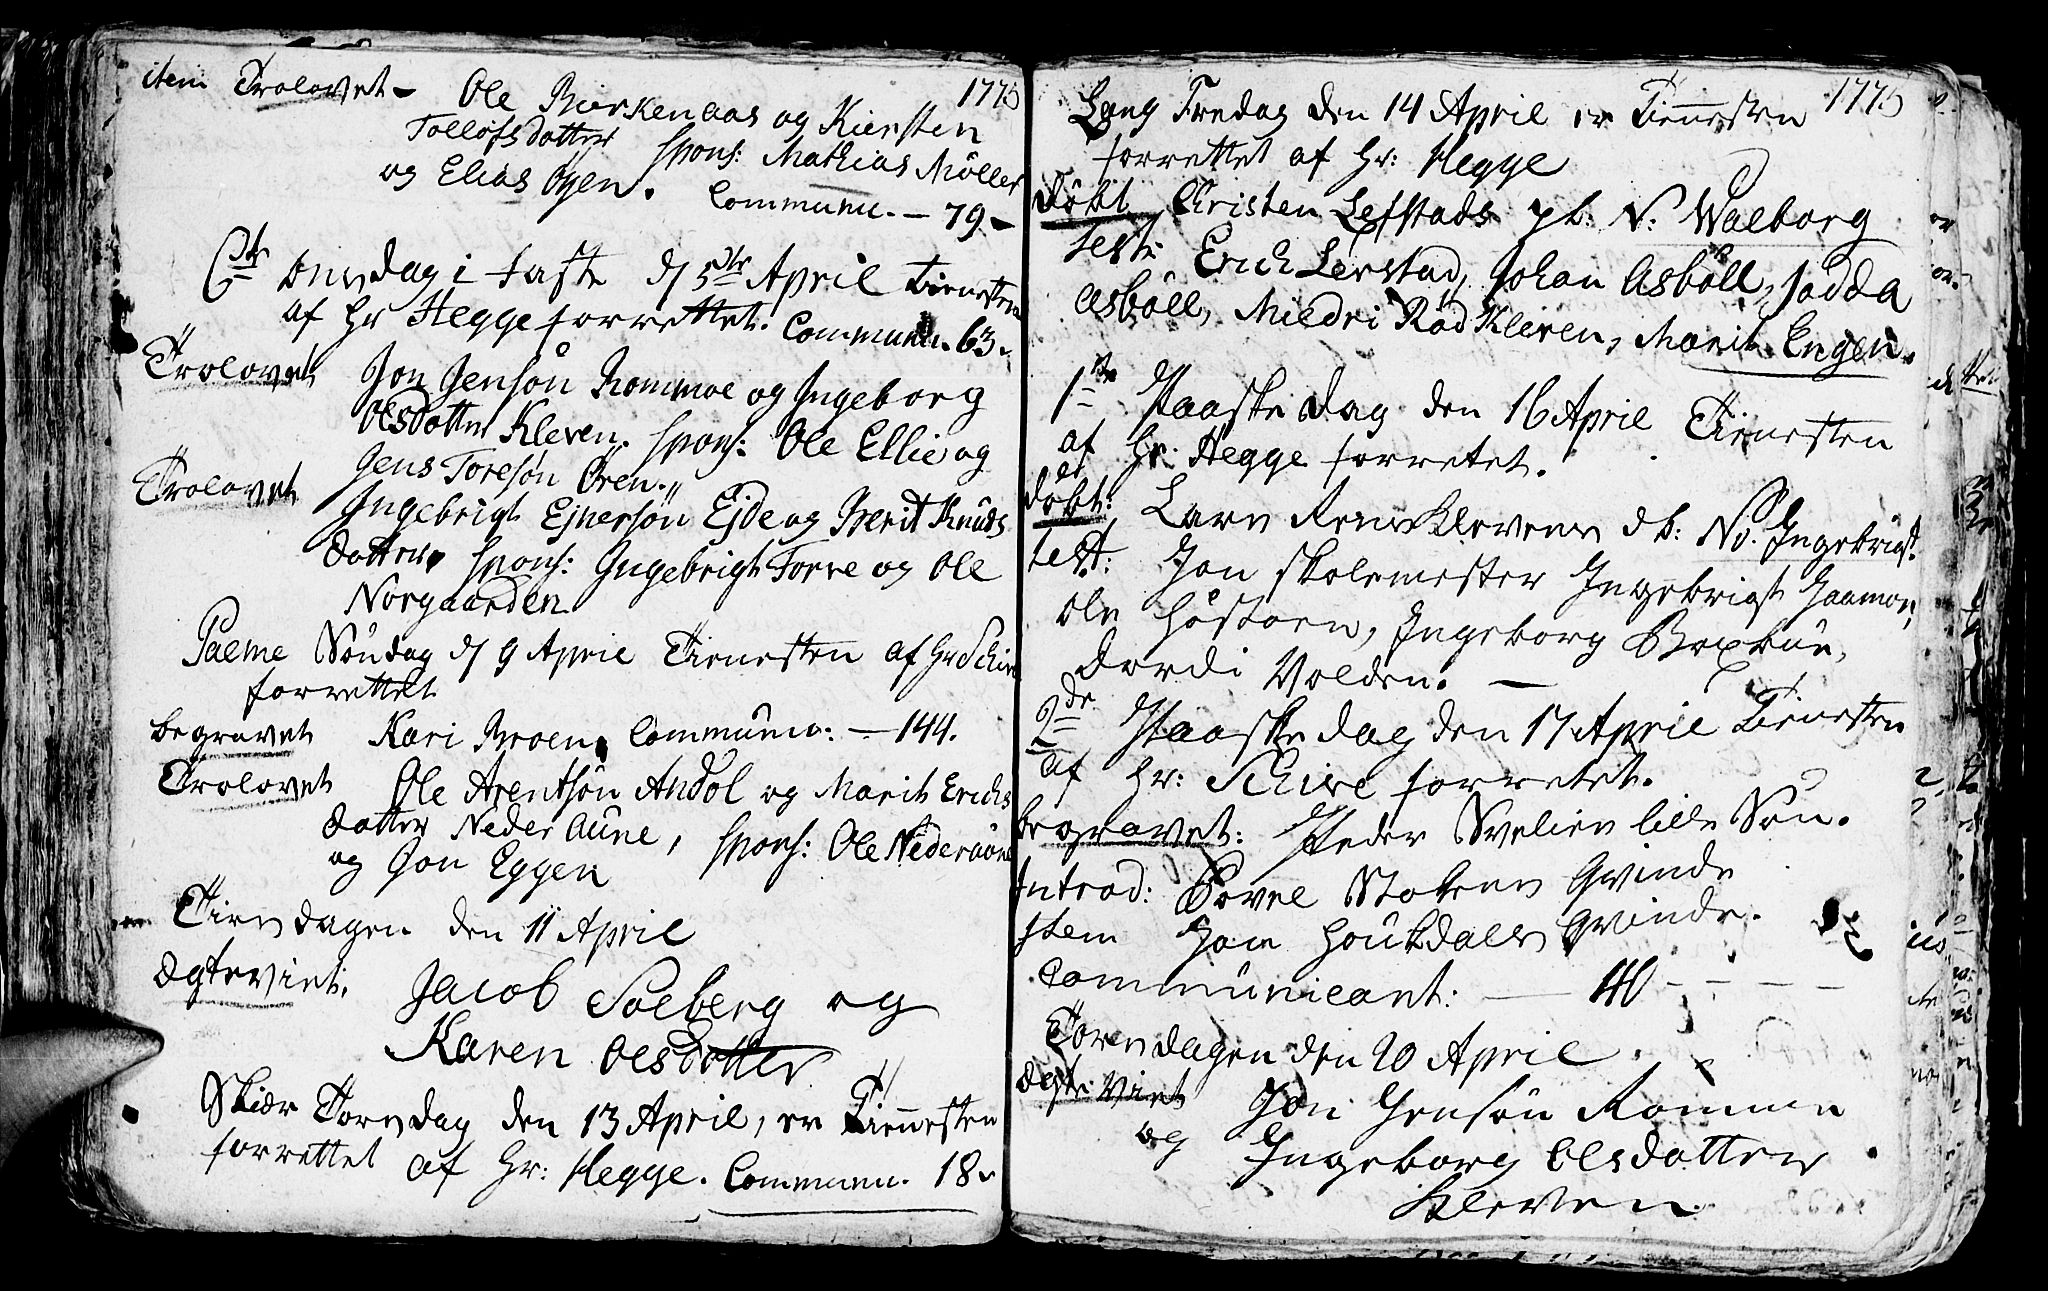 item Trolovet - Ole Birkenaas og Kiersten 1775
Tollofsdatter spons: Mathias Möller
og Elias Öyen. Communu. - 79 -
6te Onsdag i Faste d 5te April Tienesten
af Hr Hegge forrettet. Communu. 63.
Trolovet Jon Jensøn Rommoe og Ingeborg
Olsdatter Kleven. spons: Ole Ellie og
Jens Toresøn Ören.
Trolovet Ingebrigt Ejnersön Ejde og Berit Knuds
datter. spons: Ingebrigt Torve og Ole
Norgaarden
Palme Söndag d 9 April Tienesten af Hr Schive
forrettet
begravet Kari Broen. Communu: - 144.
Trolovet Ole Arentsön Andøl og Marit Erichs
datter Neder Aune, spons: Ole Nederaune
og Jon Eggen
Tirsdagen den 11 April
Ægteviet: Jacob Soeberg og
Karen Olsdatter
Skiær Torsdag den 13 April, er Tienesten
forrettet af Hr: Hegge. Communu. 18.
Lang Fredag den 14 April er Tienesten 1775
forrettet af Hr: Hegge
Döbt Christen Lefstads pb: N: Walborg
Test: Erich Lefstad, Johan Asböll, Jodda
Asböll, Miedri Röd Kleven, Marit Engen.
1te Paaske Dag den 16 April Tienesten
af Hr: Hegge forretet.
döbt: Lars Kleven db: No. Ingebrigt.
Test: Jon Skolemester Ingebrigt Gaamoe,
Ole Haastoen, Ingeborg
Dordi Volden. -
2de Paaske dag den 17 April Tienesten
af Hr: Schive forretet.
begravet: Peder Svelien lille Sön.
Introd: Povel Stokens Qvinde
Item Jon Houkdalen Qvinde.
Communicant: - 40 - - - -
Torsdagen den 20 April.
Ægte Viet Jon Jensøn Rommen
og Ingeborg Olsdatter
Kleven